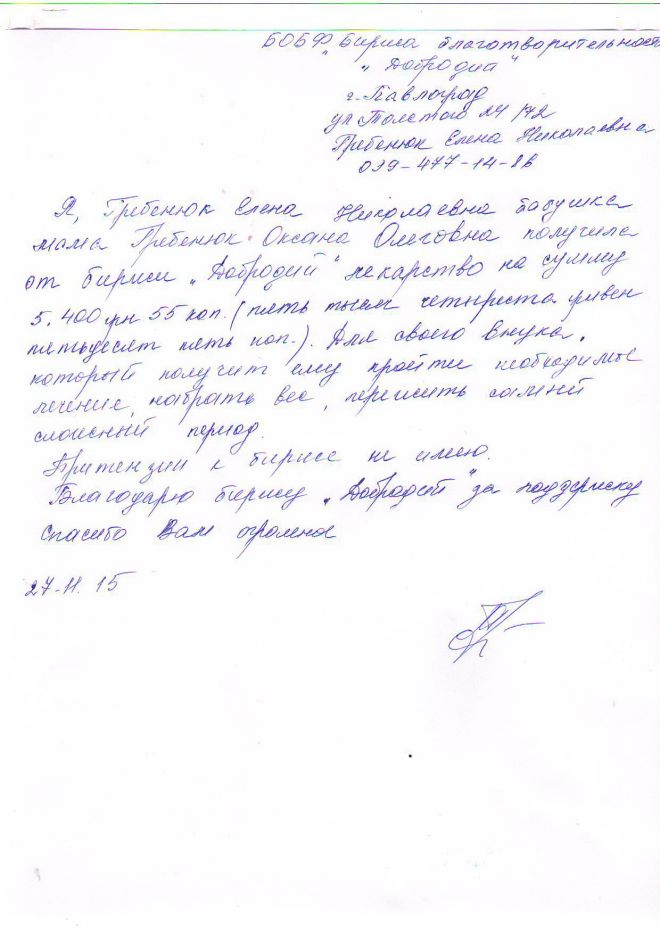 БОБФ "Биржа благотворительност
"Добродиа"
г. Павлоград
ул Толстого
Гребенюк Елена Николаевна
099-477-14-86
Я, Гребенюк Елена Николаевна бабушка
мама Гребенюк Оксана Олеговна получила
от биржи "Добродий" лекарство на сумму
5.400 грн 55 коп. (пять тысяч четыреста гривен
пятьдесят пять коп.). Для своего внука,
который получит ему пройти необходимое
лечение, набрать вес, пережить самый
сложный период.
Притензии к бирже не имею.
Благодарю биржу "Добродей" за поддержку
Спасибо Вам огромное
27-11.15